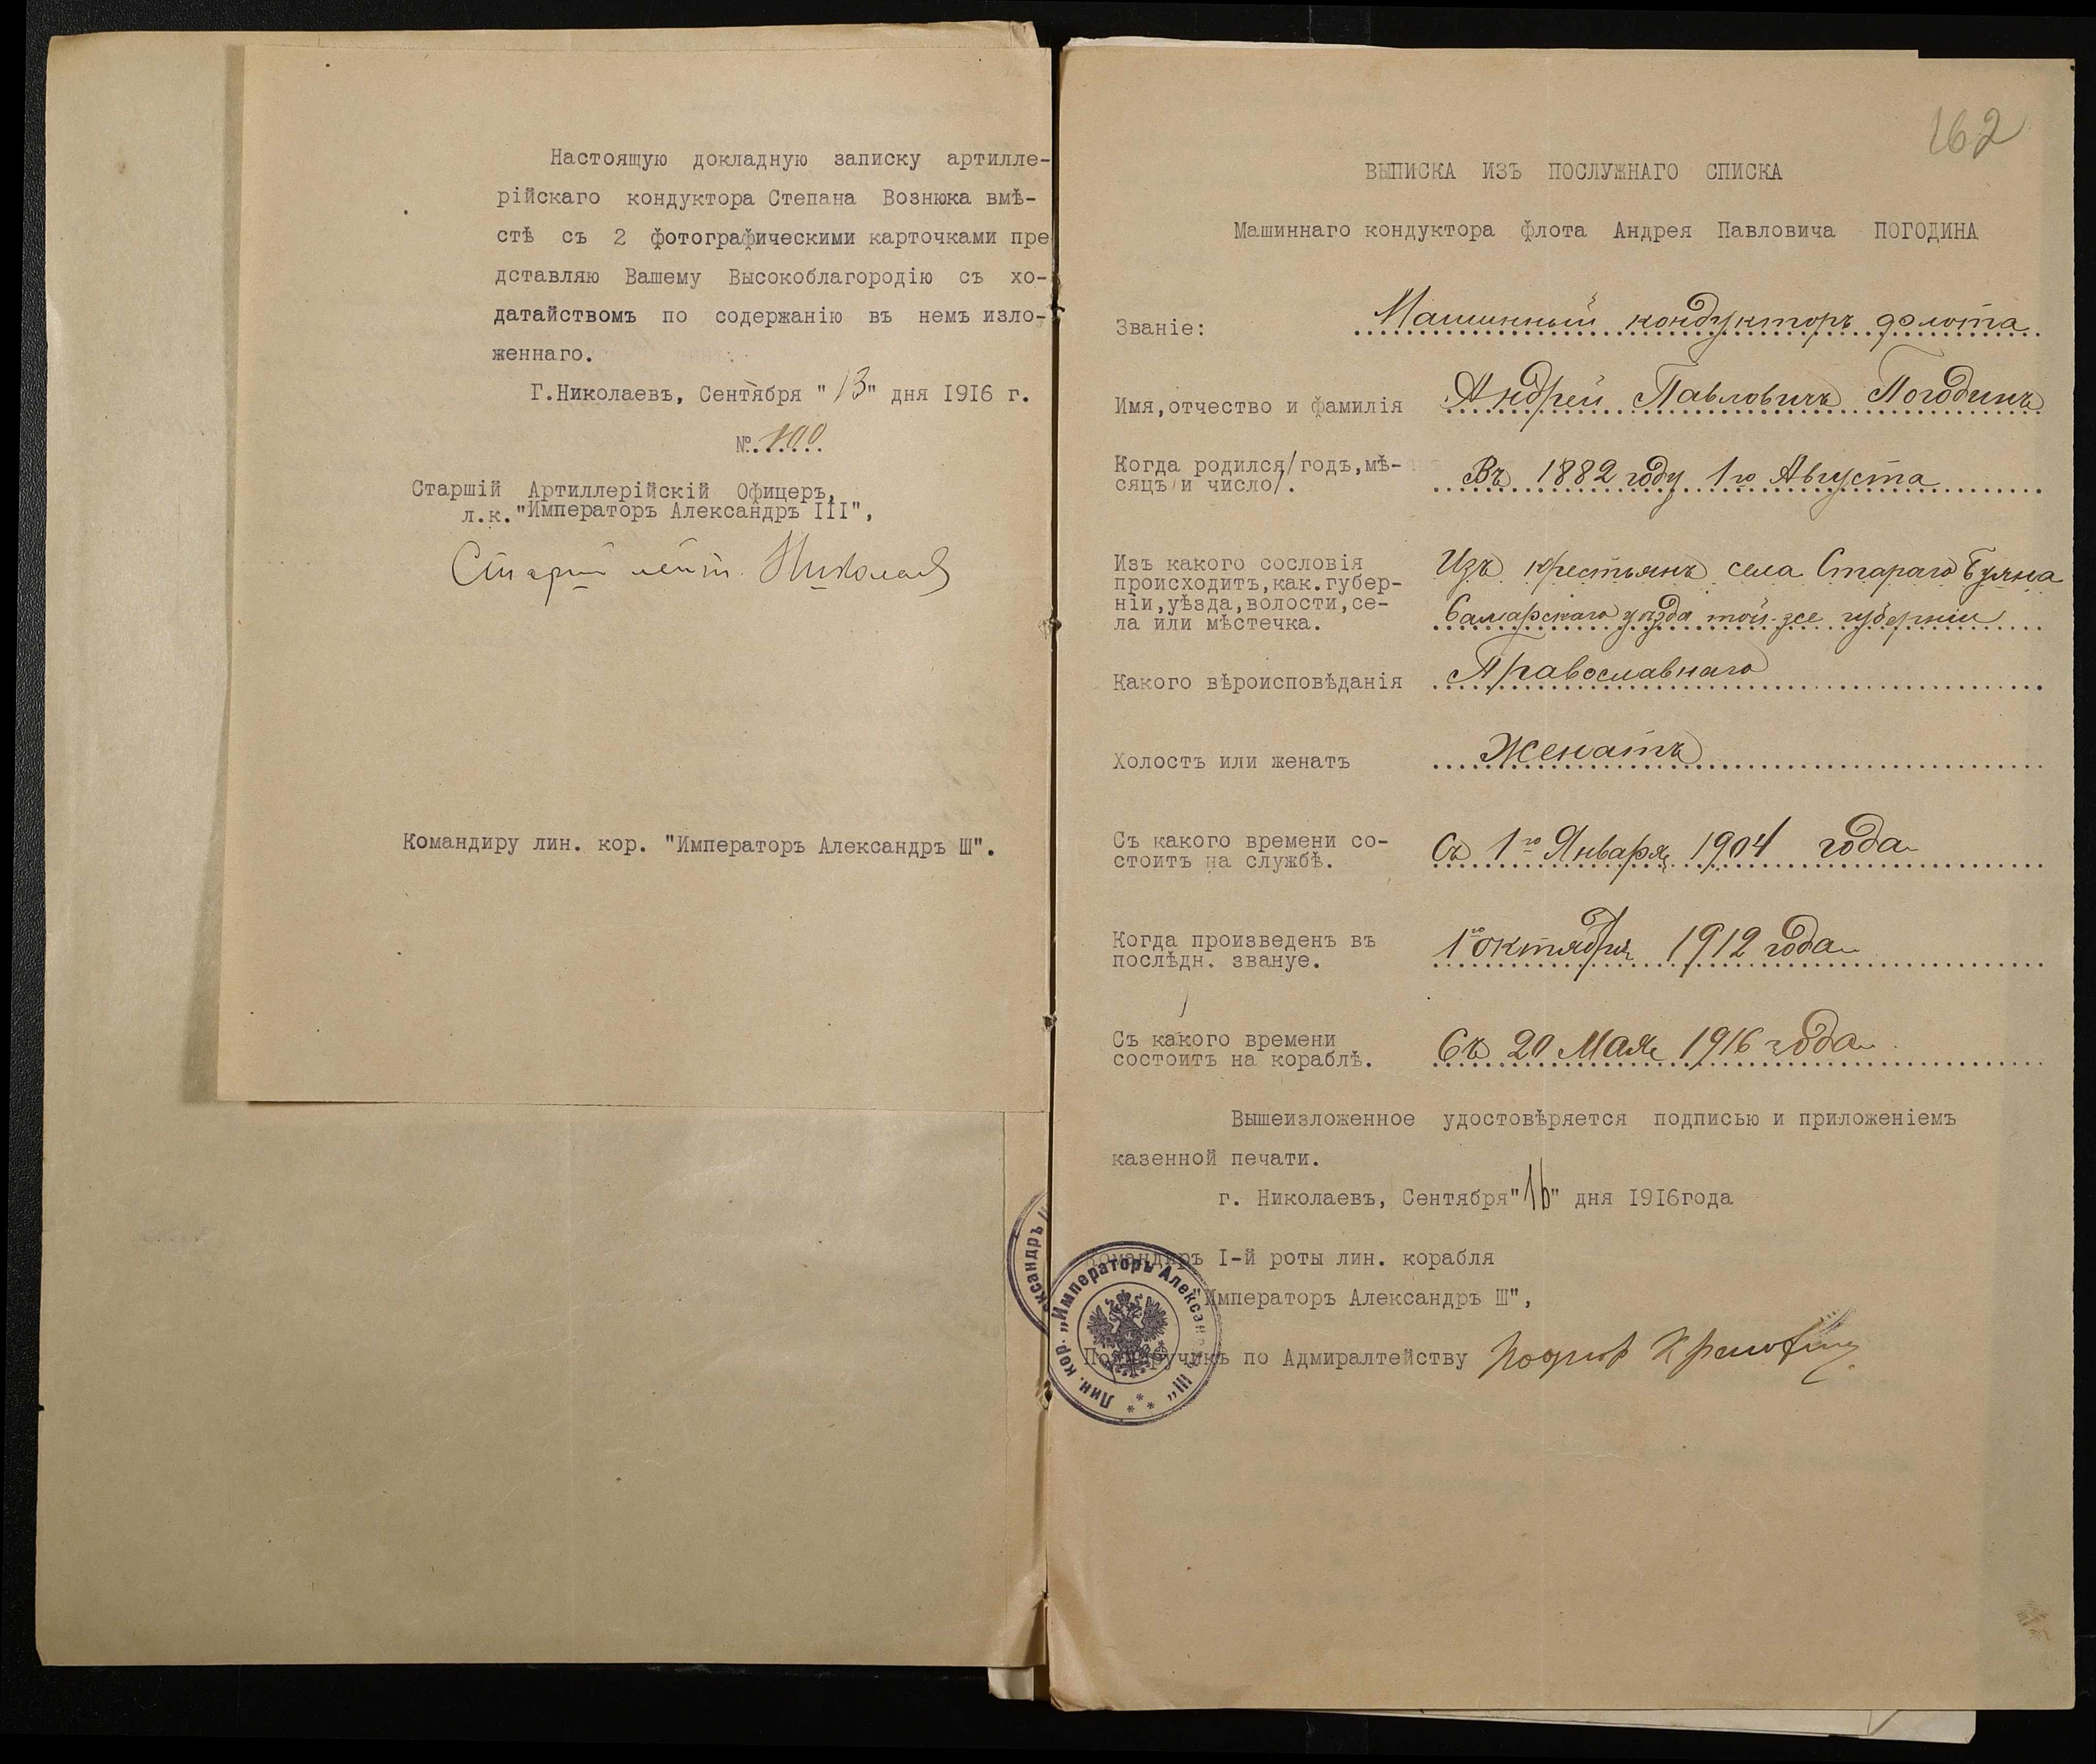 Настоящую докладную записку артилле-
рійскаго кондуктора Степана Вознюка вмѣ-
стѣ съ 2 фотографическими карточками пре
дставляю Вашему Высокоблагородію съ хо-
датайствомъ по содержанію въ немъ изло-
женнаго.
Г.Николаевъ, Сентября "13" дня 1916 г.
№.100
Старшій Артиллерійскій Офицеръ,
л.к."Императоръ Александръ III",
Старш лейт. Николаев
Командиру лин. кор. "Императоръ Александръ Ш".
ксандръ
162
ВЫПИСКА ИЗЪ ПОСЛУЖНАГО СПИСКА
Машиннаго кондуктора флота Андрея Павловича ПОГОДИНА
Званіе: Машинный кондукторъ флота
Имя,отчество и фамилія Андрей Павловичъ Погодинъ
Когда родился/годъ,мѣ-
сяцъ и число/. Въ 1882 году 1го Августа
Изъ какого сословія Изъ крестьянъ села Стараго Буяна
происходитъ,как.губер-
ніи,уѣзда,волости,се- Самарскаго уѣзда той-же губерніи
ла или мѣстечка.
Какого вѣроисповѣданія Православнаго
Холостъ или женатъ Женатъ
Съ какого времени со- Съ 1го Января 1904 года
стоитъ на службѣ.
Когда произведенъ въ 1го октября 1912 года
послѣдн. звануе.
Съ какого времени Съ 20 Мая 1916 года
состоитъ на кораблѣ.
Вышеизложенное удостовѣряется подписью и приложеніемъ
казенной печати.
г. Николаевъ, Сентября"16" дня 1916года
Командиръ I-й роты лин. корабля
"Императоръ Александръ Ш",
Подпоручикъ по Адмиралтейству
Лин. кор. „Императоръ Александръ III“